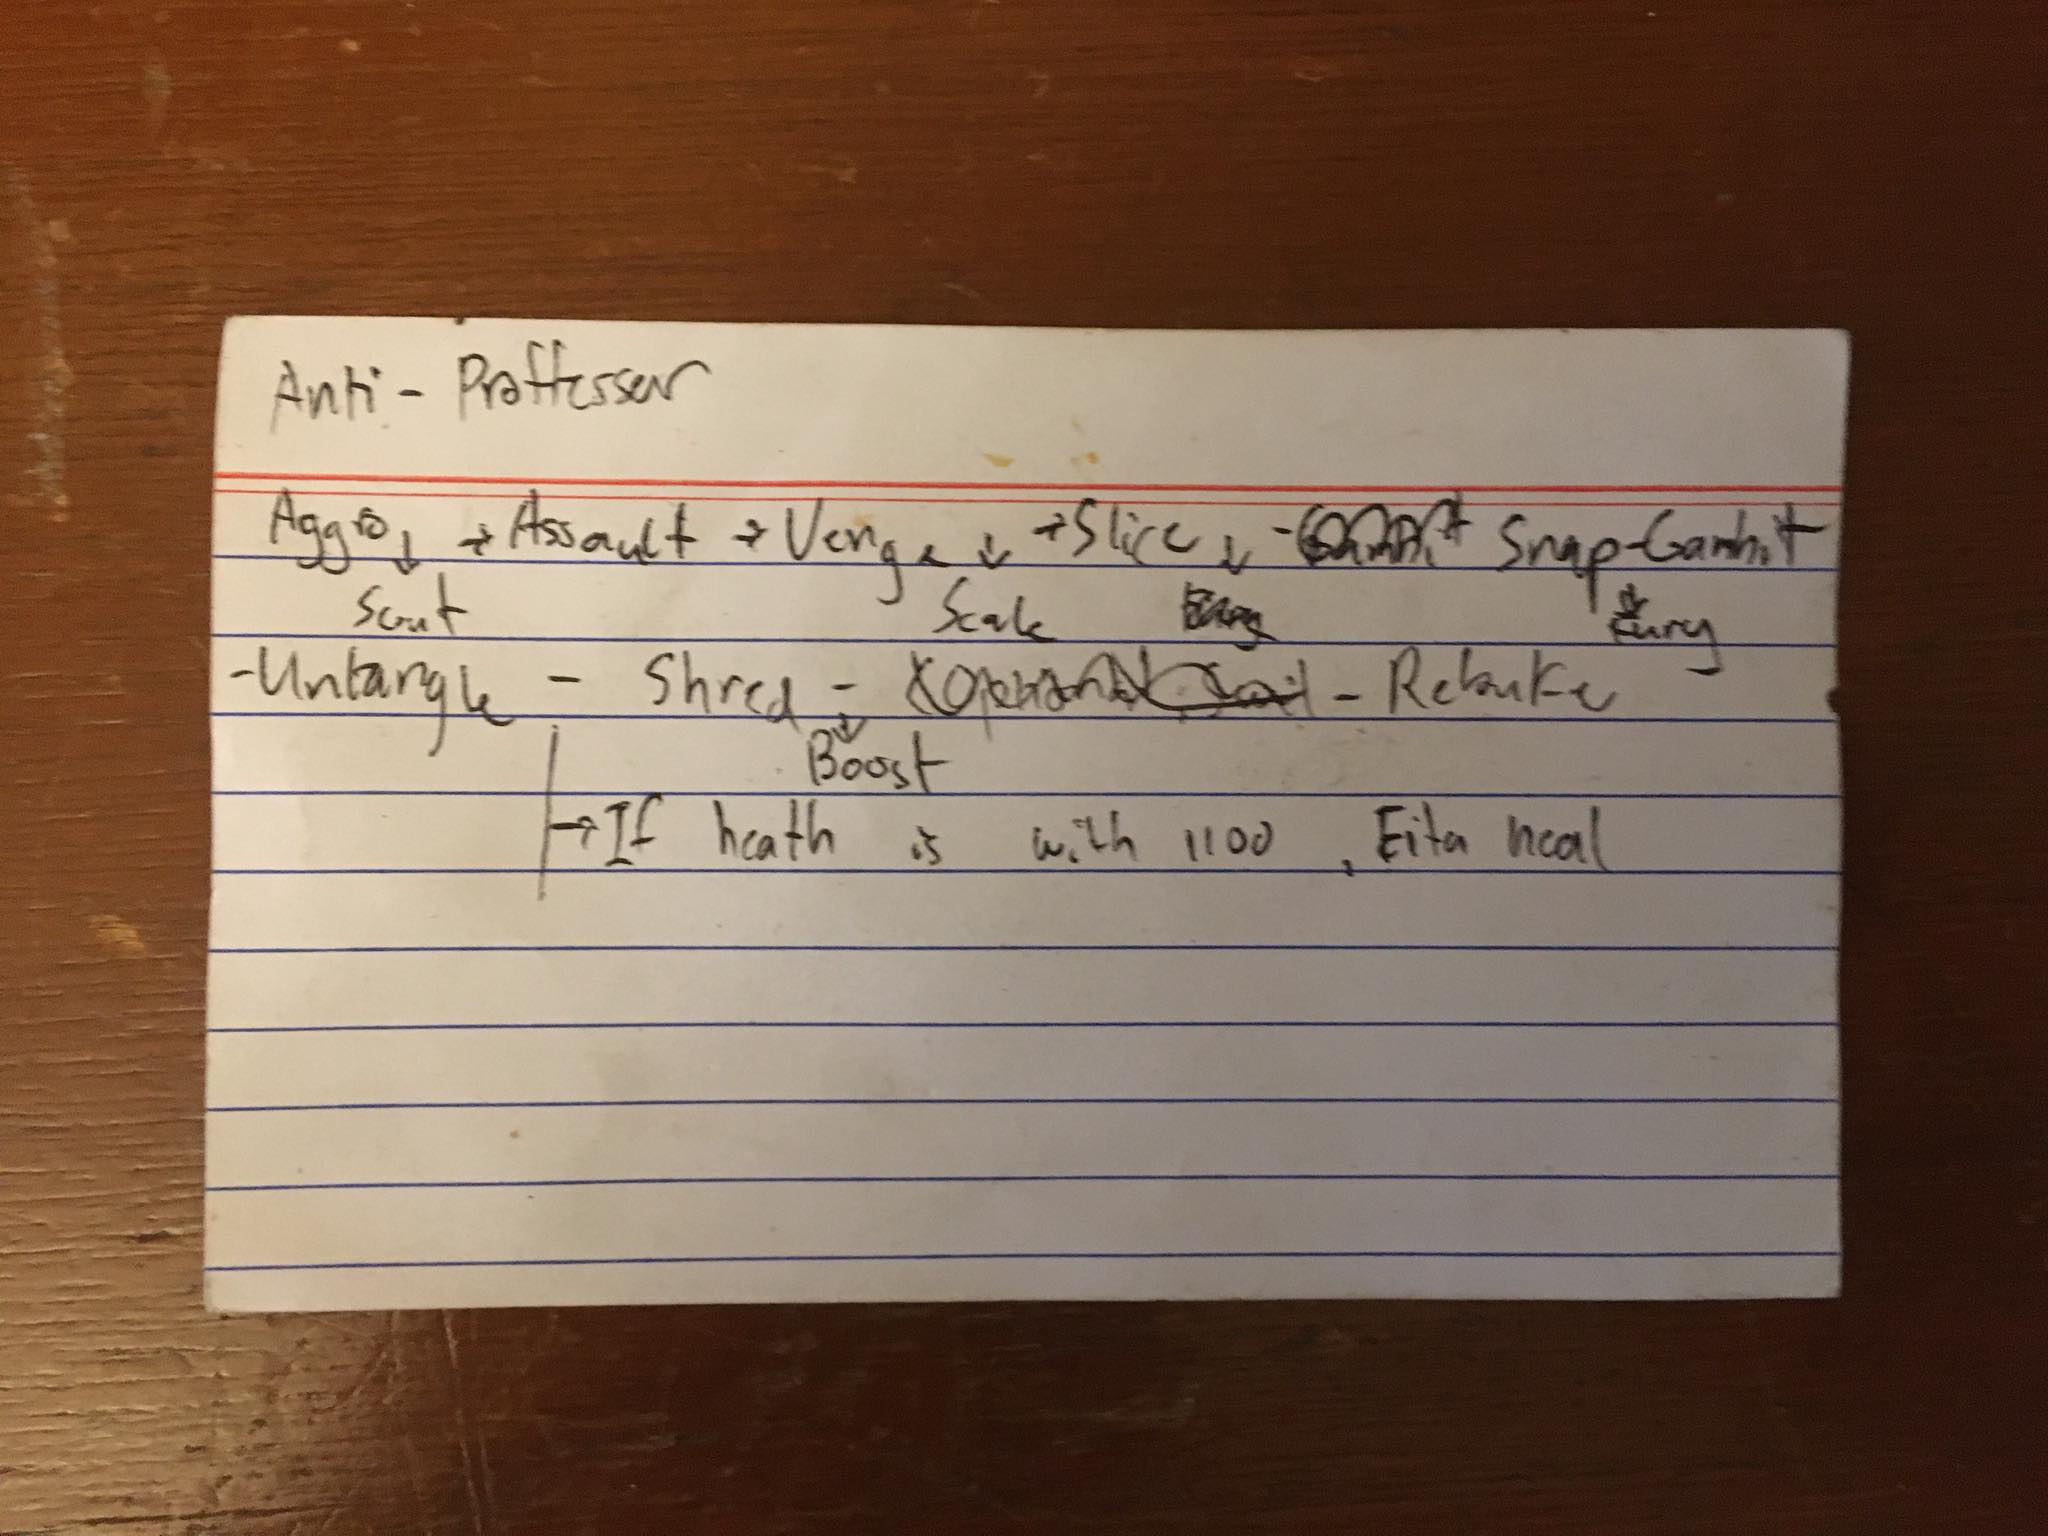 Anti - Proffesser
Aggro ↓ → Assault → Venge ↓ → Slice ↓ - Snap-Gambit
Scout Scale Fury
- Untangle - Shred - - Rebuke
↓ Boost
→ If heath is with 1100, Eita heal